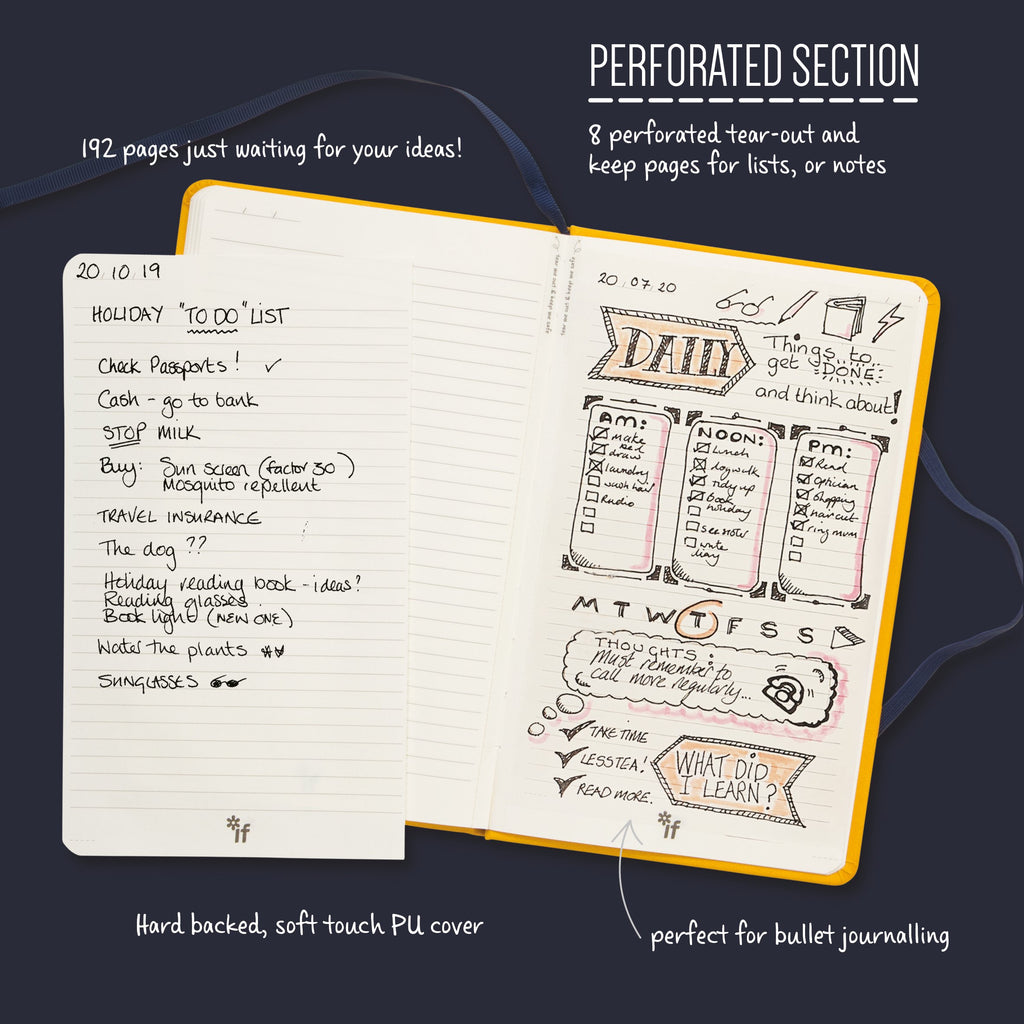 PERFORATED SECTION
8 perforated tear-out and
keep pages for lists, or notes
192 pages just waiting for your ideas!
20.10.19
HOLIDAY "TO DO" LIST
Check Passports! ✓
Cash - go to bank
STOP MILK
Buy: Sun screen (factor 30)
Mosquito repellent
TRAVEL INSURANCE
The dog ??
Holiday reading book - ideas?
Reading glasses.
Book light (NEW ONE)
Water the plants
SUNGLASSES
*if
tear me out & keep me safe
tear me out & keep me safe
20.07.20
DAILY
Things to
get DONE
and think about!
AM:
make
bed
draw
laundry
wash hair
Radio
NOON:
Lunch
dogwalk
tidy up
Book
holiday
see notes
write
diary
PM:
Read
Optician
Shopping
Haircut
ring mum
M T W T F S S
THOUGHTS:
Must remember to
call more regularly...
TAKE TIME
LESS TEA!
READ MORE.
WHAT DID
I LEARN?
*if
Hard backed, soft touch PU cover
perfect for bullet journalling